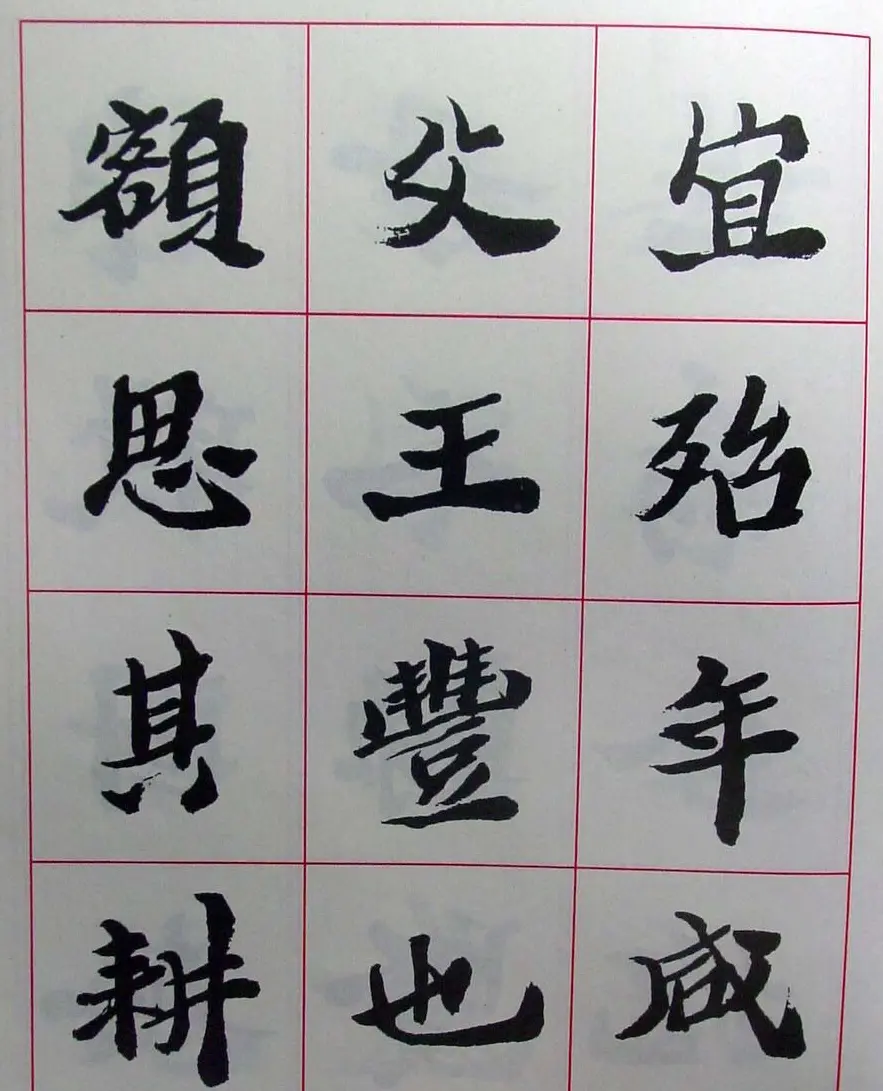 宜殆年咸
父王豐也
額思其耕